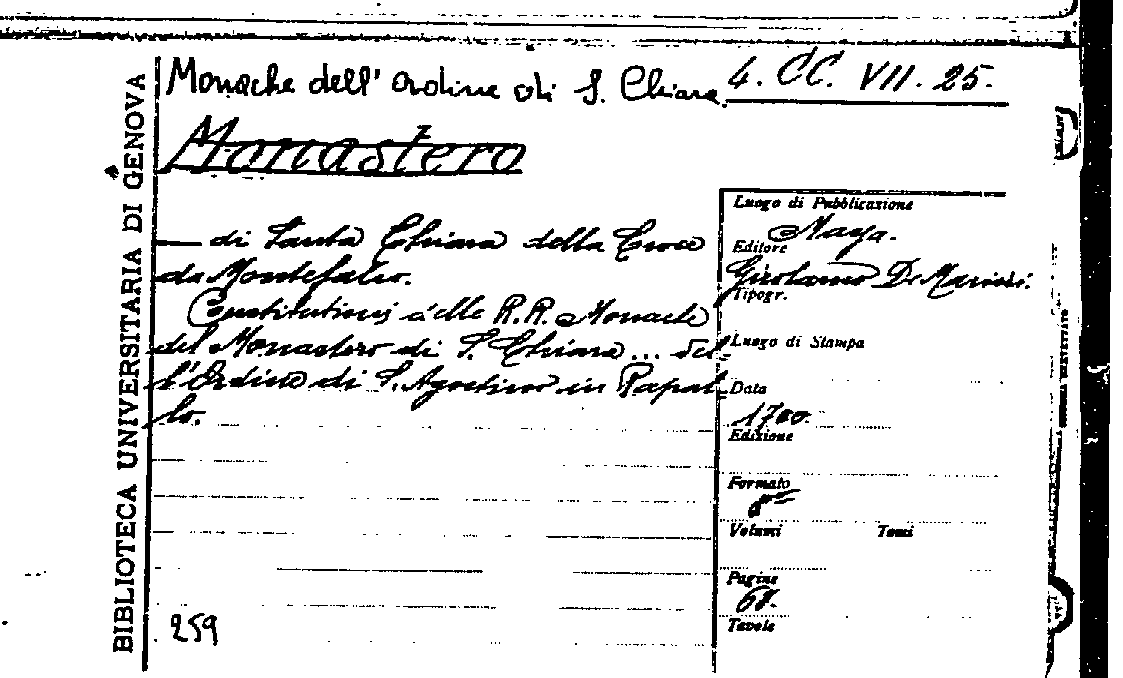 BIBLIOTECA UNIVERSITARIA DI GENOVA
Monache dell'ordine di S. Chiara 4. CC. VII. 25.
Monastero
— di Santa Chiara della Croce
da Montefalco.
Constitutioni delle R.R. Monache
del Monastero di S. Chiara... del-
l'Ordine di S. Agostino in Rapal-
lo.
259
Luogo di Pubblicazione
Editore
Girolamo De Marini.
Tipogr.
Luogo di Stampa
Data
1700.
Edizione
Formato
8°
Volumi Tomi
Pagine
68.
Tavole